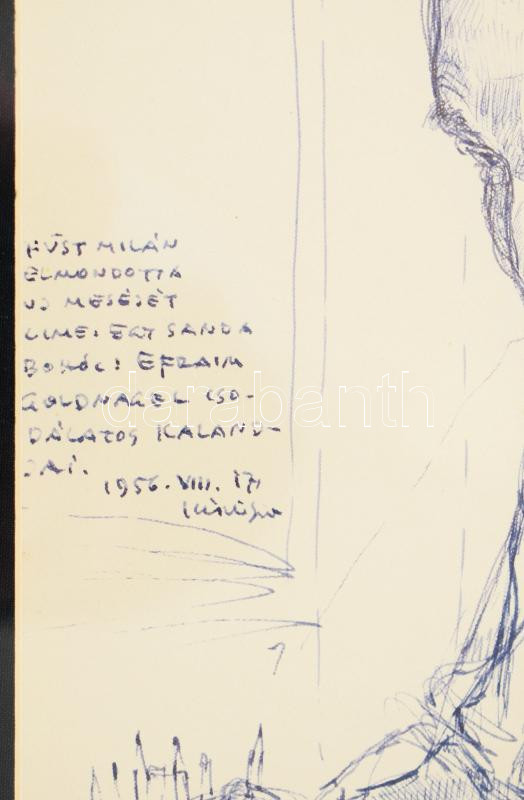 FÜST MILÁN
ELMONDOTTA
UJ MESÉJÉT
CIME: EGY SANDA
BOHÓC: EFRAIM
GOLDNAGEL CSO-
DÁLATOS KALAND-
JAI.
1956. VIII. 17
darabanth